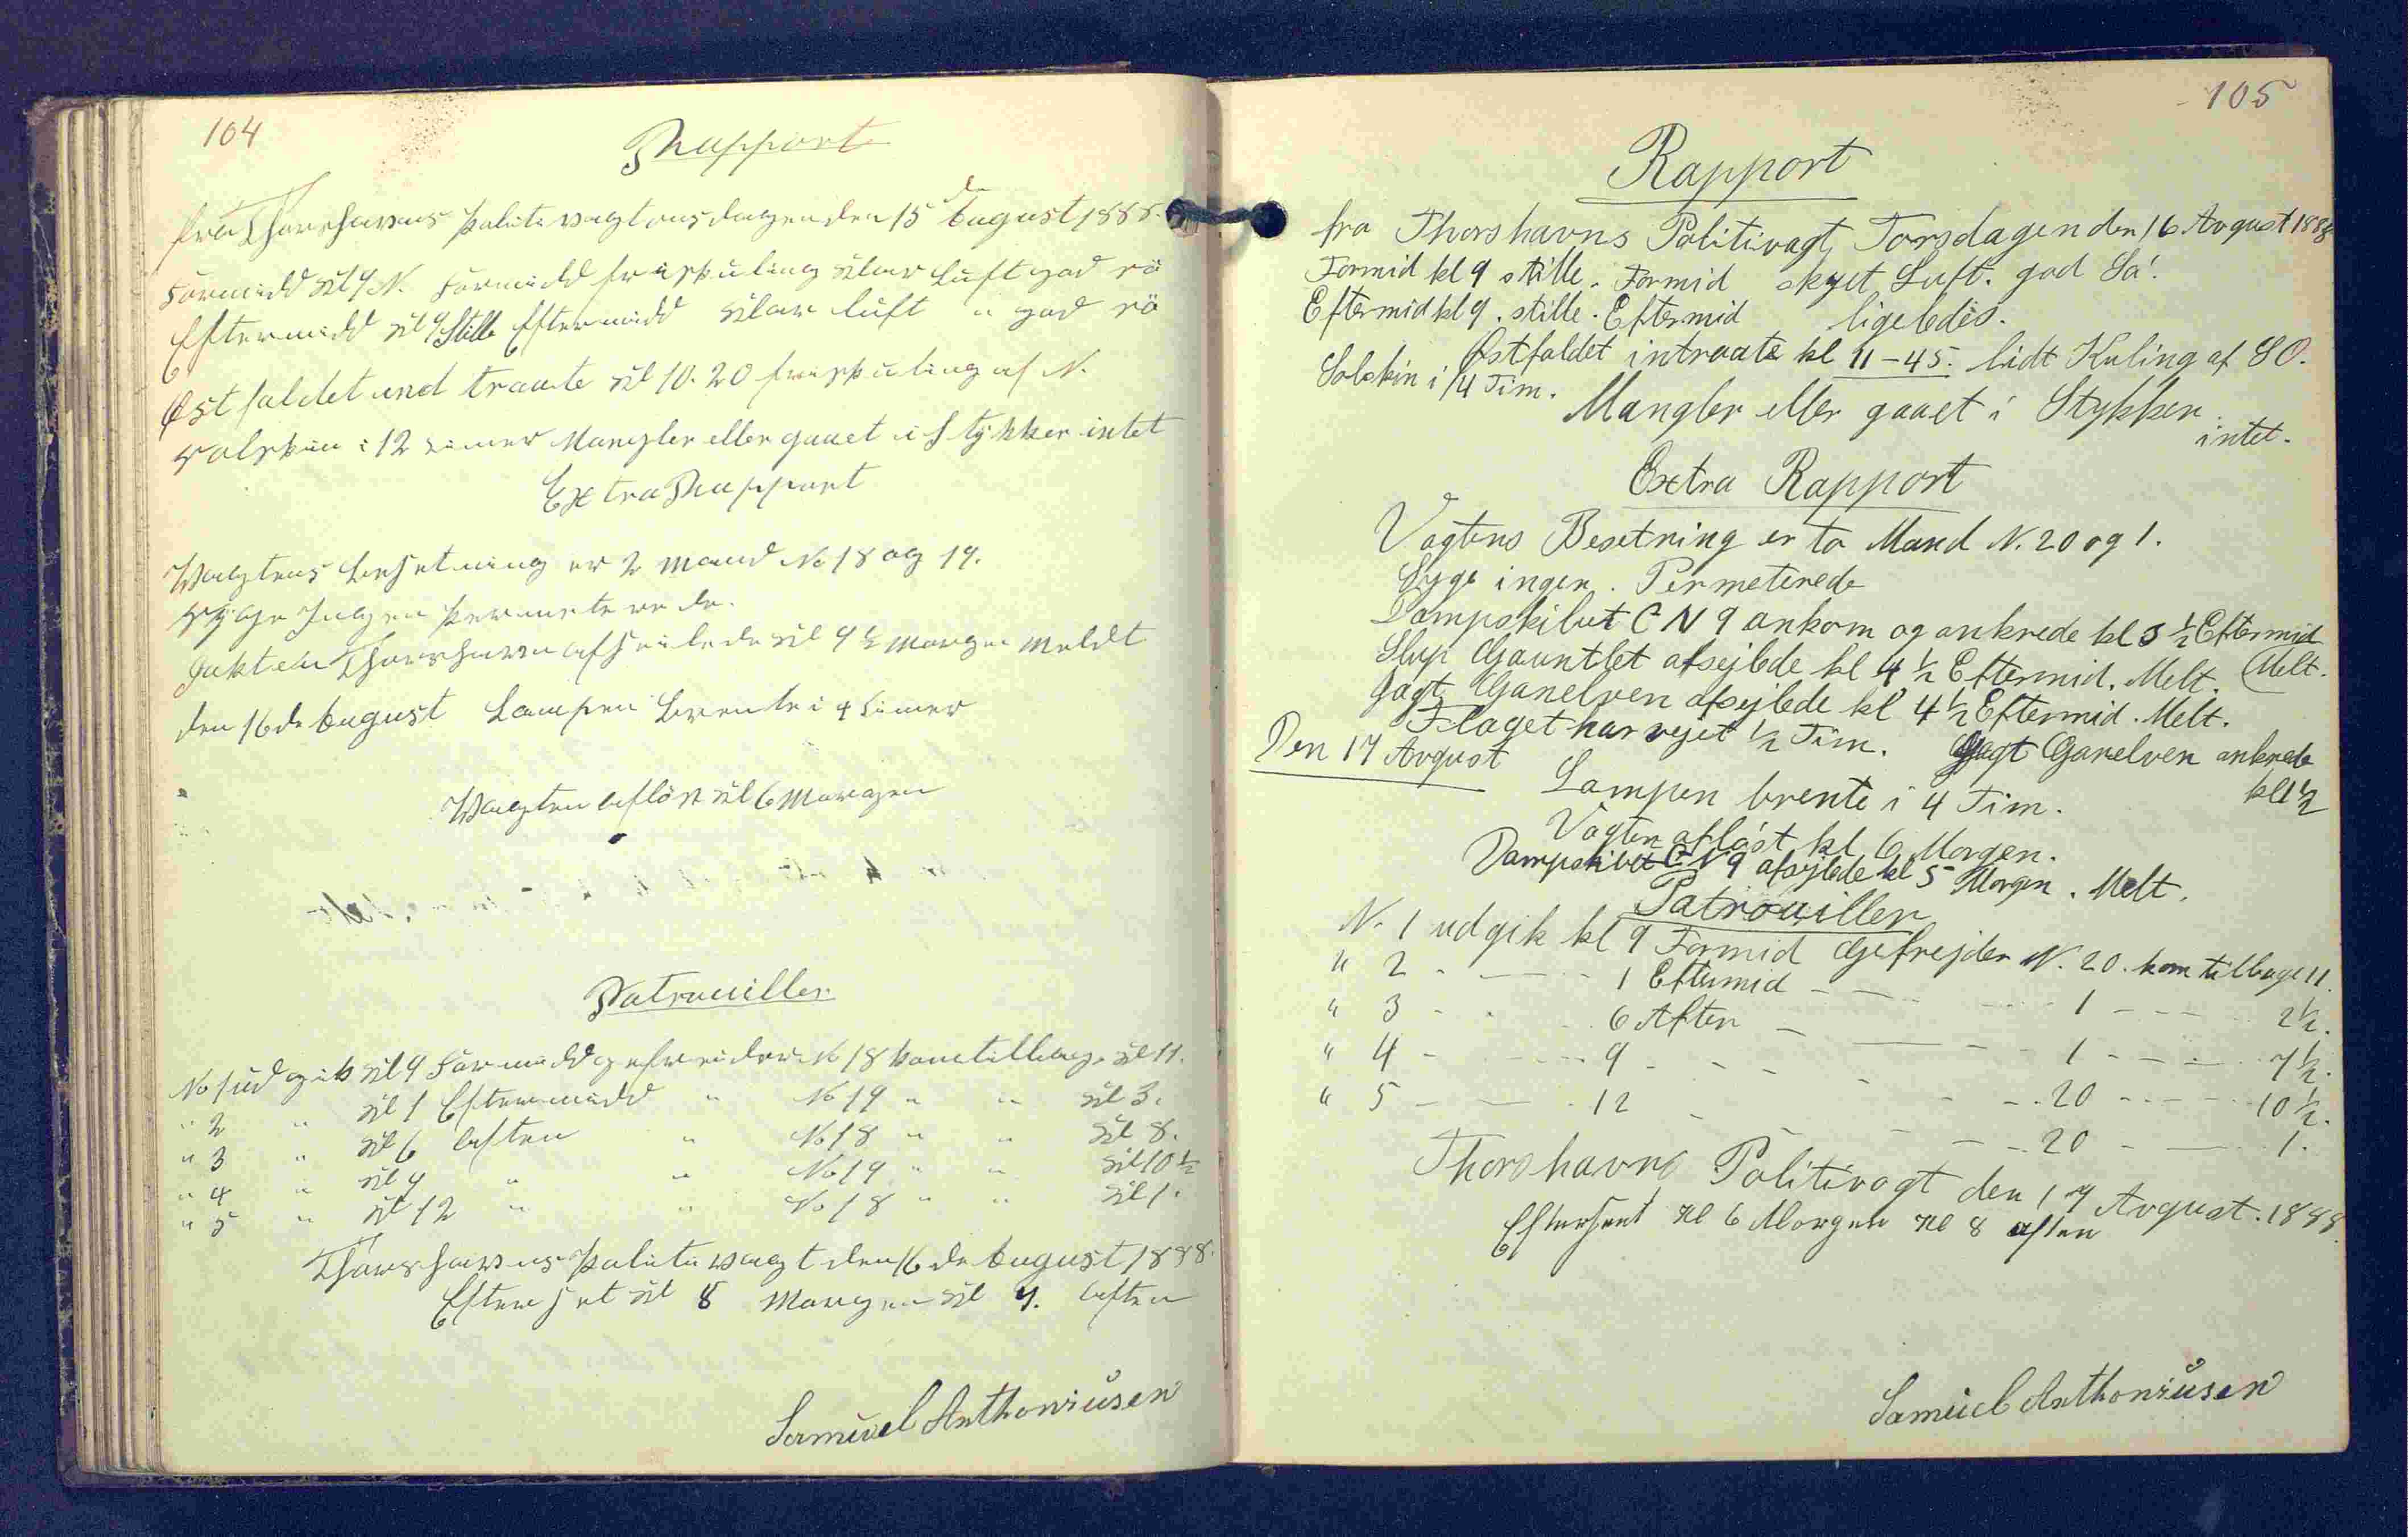 104
Rapport
fra Thorshavns Politivagt onsdagen den 15de August 1888.
Formidd kl 9 N. Formidd frisk kuling klar Luft god sö
Eftermidd kl 9 Stille Eftermidd klar luft " god sö
Østfaldet indtraate kl 10.20 frisk kuling af N.
solskin i 12 timer Mangler eller gaaet i Stykker intet
Extra Rapport
Wagtens besetning er 2 mand No 18 og 19.
syge Ingen Permeterede.
Jakten Thorshavn afseilede kl 9½ morgen Meldt
den 16de August Lampen brente i 4 timer
Wagten aflöst kl 6 Morgen
Patrouiller
No 1 udgik kl 9 Formidd gefreider No 18 kom tilbage kl 11.
" 2 " kl 1 Eftermidd " No 19 " " kl 3.
" 3 " kl 6 aften " No 18 " " kl 8.
" 4 " kl 9 " " No 19 " " kl 10½
" 5 " kl 12 " " No 18 " " kl 1.
Thorshavns Politivagt den 16de August 1888.
Efterset kl 8 Morgen kl 9. aften
Samúel Anthoniúsen
105
Rapport
fra Thorshavns Politivagt, Torsdagen den 16 Avgust 1888
Formid kl 9 stille. Formid skyet Luft. god Sö.
Eftermid kl 9. stille. Eftermid ligeledes.
Østfaldet intraate kl 11-45. lidt Kuling af SO.
Solskin i 1/4 Tim.
Mangler eller gaaet i Stykker.
intet.
Extra Rapport
Vagtens Besetning er to Mand N. 20 og 1.
Syge ingen. Permeterede
Dampskibet C N 9 ankom og ankrede kl 3 ½ Eftermid
Melt.
Slup Gauntlet afsejlede kl 4 ½ Eftermid. Melt.
Jagt Ganelven afsejlede kl 4 ½ Eftermid. Melt.
Flaget har vejet ½ Tim.
Den 17 Avgust
Jagt Ganelven ankrede
kl 1 ½
Lampen brente i 4 Tim.
Vagten afløst kl 6 Morgen.
Dampskibet C N 9 afsejlede kl 5 Morgen. Melt.
Patrouiller
N. 1 udgik kl 9 Formid Gefrejder N. 20. kom tilbage 11.
" 2 - - - 1 Eftermid - - - 1 - - - 2½.
" 3 - - - 6 Aften - - - 1 - - - 7½.
" 4 - - - 9 - - - 20 - - - 10½.
" 5 - - - 12 - - - 20 - - - 1.
Thorshavns Politivagt den 17 Avgust. 1888.
Efterset kl 6 Morgen kl 8 aften
Samúel Anthoniúsen